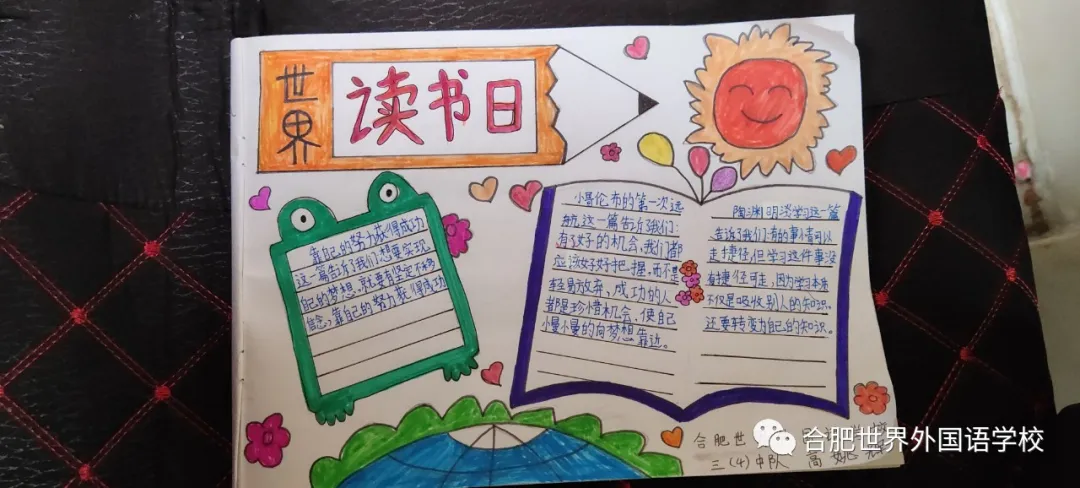 世界
读书日
靠自己的努力获得成功
这一篇告诉了我们想要实现
自己的梦想，就要有坚定不移
信念，靠自己的努力获得成功
小哥伦布的第一次远
航这一篇告诉了我们：
有了好的机会，我们都
应该好好把握，而不是
轻易放弃、成功的人
都是珍惜机会，使自
小曼小曼的向梦想靠近。
陶渊明谈学习这一篇
告诉了我们：有的事情可以
走捷径，但学习这件事没
有捷径可走，因为学习本质
不仅是吸收别人的知识。
还要转变为自己的知识。
合肥世
三(4)中队 高姚
合肥世界外国语学校